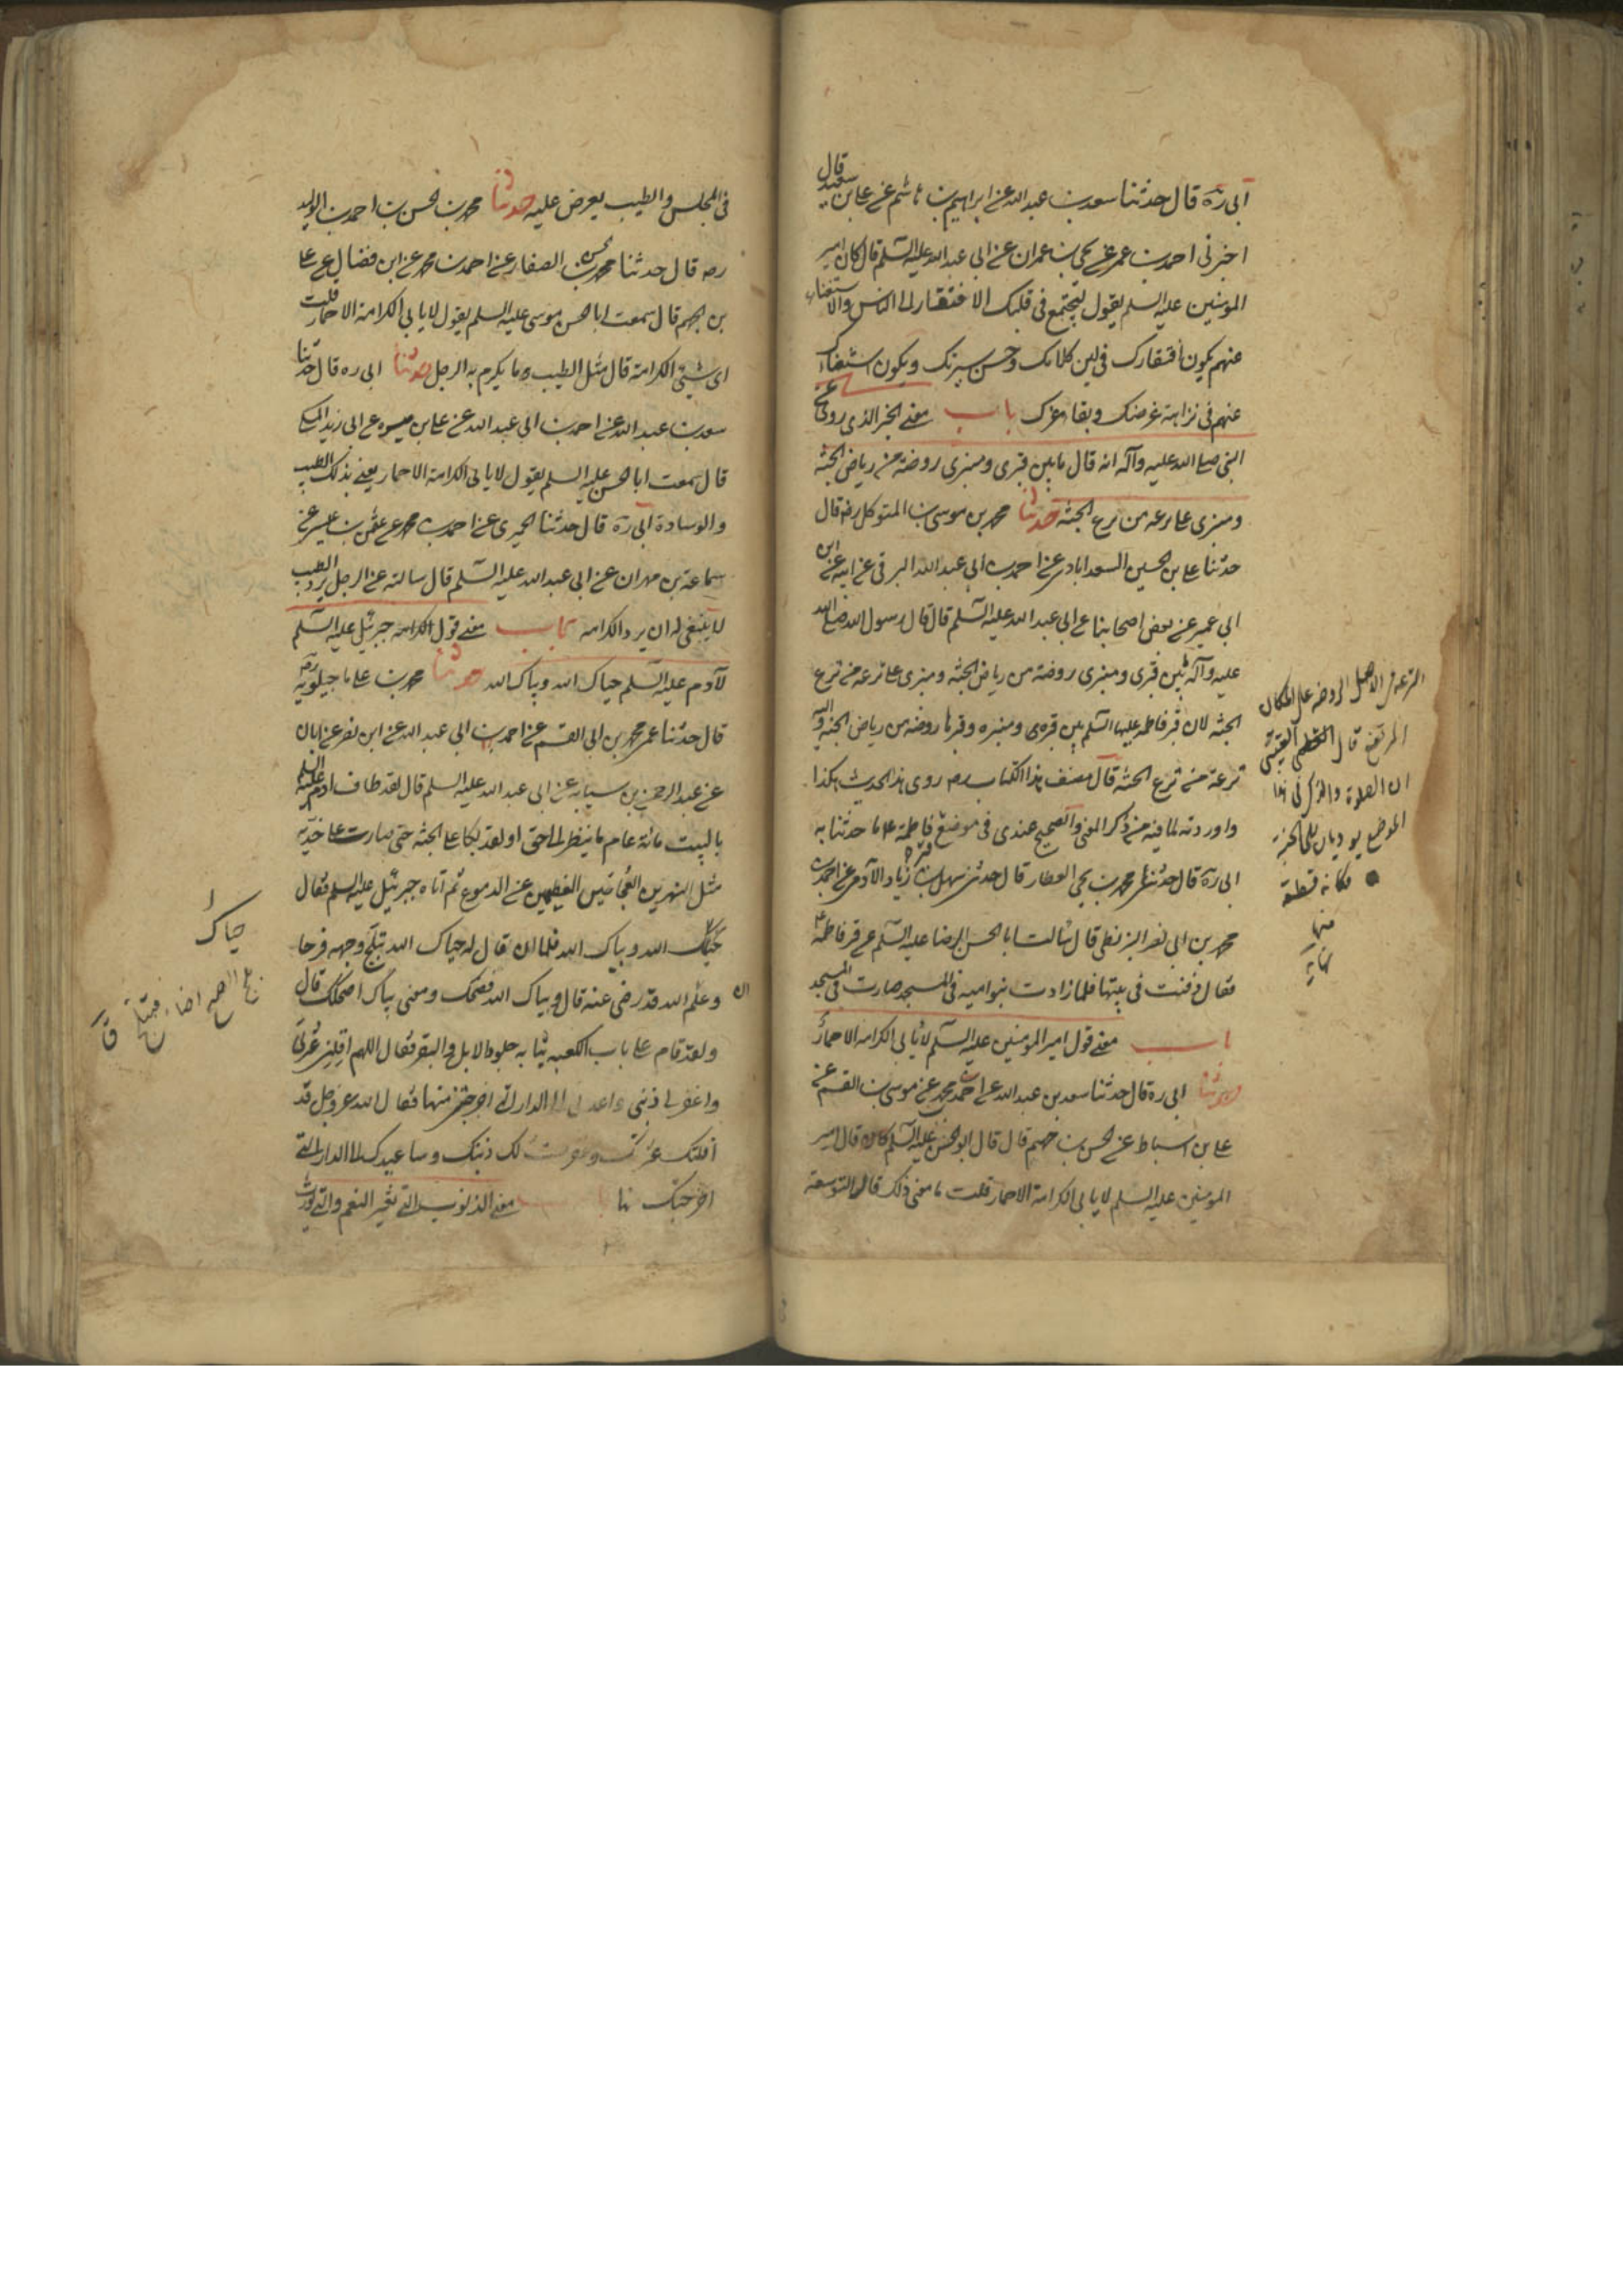 ابى ره قال حدثنا سعد بن عبد الله عن ابراهيم بن هاشم عن على بن سعيد قال
اخبرنى احمد بن عمر عن يحيى بن عمران عن ابى عبد الله عليه السلم قال كان امير
المؤمنين عليه السلم يقول ليجتمع فى قلبك الافتقار الى الناس والاستغناء
عنهم يكون افتقارك فى لين كلامك وحسن سيرتك ويكون استغناءك
عنهم فى نزاهة عرضك وبقاء عزك باب معنى الخبر الذى روى عن
النبى صلى الله عليه وآله انه قال ما بين قبرى ومنبرى روضة من رياض الجنة
ومنبرى على ترعة من ترع الجنة حدثنا محمد بن موسى بن المتوكل ره قال
حدثنا على بن الحسين السعد ابادى عن احمد بن ابى عبد الله البرقى عن ابيه عن ابن
ابى عمير عن بعض اصحابنا عن ابى عبد الله عليه السلم قال قال رسول الله صلى الله
عليه وآله بين قبرى ومنبرى روضة من رياض الجنة ومنبرى على ترعة من ترع
الجنة لان قبر فاطمه عليها السلم بين قبره ومنبره وقبرها روضة من رياض الجنة واليه
ترعة من ترع الجنة قال مصنف هذا الكتاب ره روى هذا الحديث هكذا
واوردته لما فيه من ذكر المعنى والصحيح عندى فى موضع قبر فاطمة ع ما حدثنا به
ابى ره قال حدثنا محمد بن يحيى العطار قال حدثنى سهل بن زياد الآدمى عن احمد بن
محمد بن ابى نصر البزنطى قال سالت ابا الحسن الرضا عليه السلم عن قبر فاطمة ع
فقال دفنت فى بيتها فلما زادت بنو اميه فى المسجد صارت فى المسجد
باب معنى قول امير المؤمنين عليه السلم لا يابى الكرامة الا حمار
حدثنا ابى ره قال حدثنا سعد بن عبد الله عن احمد بن محمد عن موسى بن القسم عن
على بن اسباط عن الحسن بن جهم قال قال ابو الحسن عليه السلم كان قال امير
المؤمنين عليه السلم لا يابى الكرامة الا حمار قلت ما معنى ذلك قال التوسعة
الترعة فى الاصل الروضة على المكان
المرتفع قال القتيبى
ان الصلوة والذكر فى هذا
الموضع يوديان الى الجنة
فكانه قطعة
منها
نهاية
فى المجلس والطيب يعرض عليه حدثنا محمد بن الحسن بن احمد بن الوليد
ره قال حدثنا محمد بن الحسن الصفار عن احمد بن محمد عن ابن فضال عن على
بن الجهم قال سمعت ابا الحسن موسى عليه السلم يقول لا يابى الكرامة الا حمار قلت
اى شئ الكرامة قال مثل الطيب وما يكرم به الرجل حدثنا ابى ره قال حدثنا
سعد بن عبد الله عن احمد بن ابى عبد الله عن على بن ميسره عن ابى زيد المكى
قال سمعت ابا الحسن عليه السلم يقول لا يابى الكرامة الا حمار يعنى بذلك الطيب
والوسادة ابى ره قال حدثنا الحميرى عن احمد بن محمد عن عثمن بن عيسى عن
سماعة بن مهران عن ابى عبد الله عليه السلم قال سالته عن الرجل يرد الطيب
لا ينبغى له ان يرد الكرامه باب معنى قول الكرامه جبرئيل عليه السلم
لآدم عليه السلم حياك الله وبياك الله حدثنا محمد بن على ماجيلويه ره
قال حدثنا عمى محمد بن ابى القسم عن احمد بن ابى عبد الله عن ابن نصر عن ابان
عن عبد الرحمن بن سيابه عن ابى عبد الله عليه السلم قال لقد طاف ادم عليه السلم
بالبيت مائة عام ما ينظر الى حوا ولقد بكا على الجنة حتى صارت على خديه
مثل النهرين العجاجين العظيمين من الدموع ثم اتاه جبرئيل عليه السلم فقال
حياك الله وبياك الله فلما ان قال له حياك الله تبلج وجهه فرحا
وعلم الله قد رضى عنه قال وبياك الله فضحك ومعنى بياك اضحكك قال
ان
ولقد قام على باب الكعبه ثيابه جلود الابل والبقر فقال اللهم اقلنى عثرتى
واغفر لى ذنبى واعدنى الى الدار التى اخرجتنى منها فقال الله عز وجل قد
اقلتك عثرتك وغفرت لك ذنبك وساعيدك الى الدار التى
اخرجتك منها باب معنى الذنوب التى تغير النعم والتى تورث
حياك